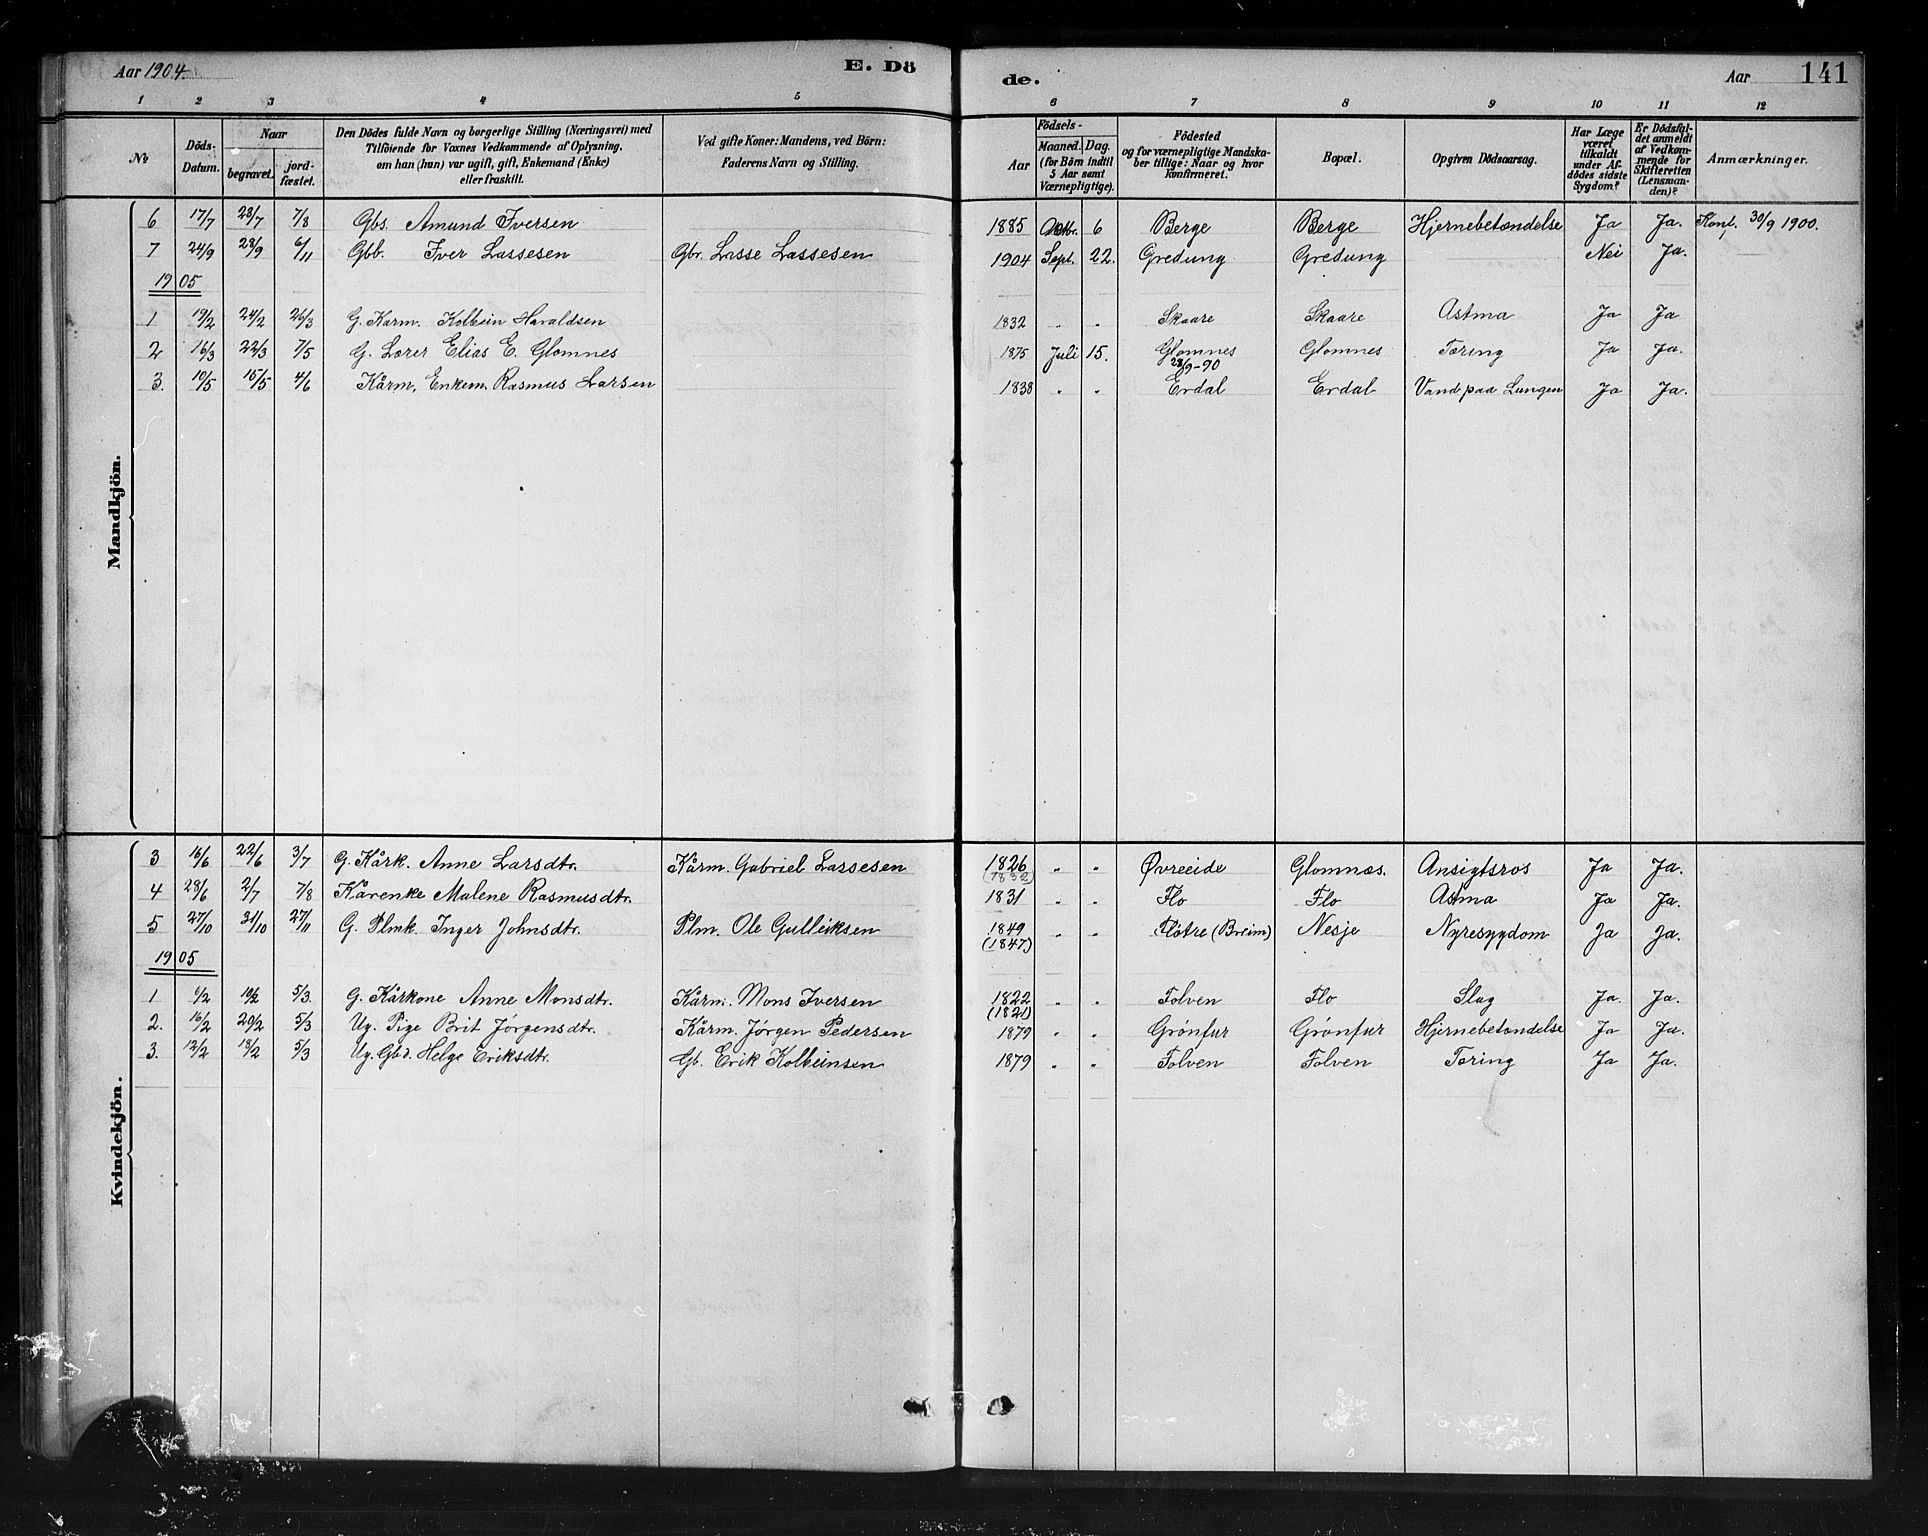 Aar 1904. E. Dö de. Aar 141
1 2 3 4 5 6 7 8 9 10 11 12
No
Döds-Datum.
Naar
begravet.
jord-fæstet.
Den Dödes fulde Navn og borgerlige Stilling (Næringsvei) med
Tilföiende for Voxnes Vedkommende af Oplysning,
om han (hun) var ugift, gift, Enkemand (Enke)
eller fraskilt.
Ved gifte Koner: Mandens, ved Börn:
Faderens Navn og Stilling.
Födsels-
Aar
Maaned. Dag.
(for Börn indtil
5 Aar samt
Værnepligtige).
Födested
og for værnepligtige Mandska-
ber tillige: Naar og hvor
konfirmeret.
Bopæl.
Opgiven Dödsaarsag.
Har Læge
været
tilkaldt
under Af-
dödes sidste
Sygdom?
Er Dödsfal-
det anmeldt
af Vedkom-
mende for
Skifteretten
(Lensman-
den)?
Anmærkninger.
Mandkjön.
6 17/7 23/7 7/8 Gbs. Amund Iversen 1885 Oktbr. 6 Berge Berge Hjernebetændelse Ja Ja. Konf. 30/9 1900.
7 24/9 28/9 6/11 Gbb. Iver Lassesen Gbr. Lasse Lassesen 1904 Sept. 22. Gredung Gredung Nei Ja.
1905
1 19/2 24/2 26/3 G. Karm. Kolbein Haraldsen 1832 " " Skaare Skaare Astma Ja Ja
2 16/3 22/3 7/5 G. Lærer Elias E. Glomnes 1875 Juli 15. Glomnes 28/9-90 Glomnes Tæring Ja Ja.
3. 10/5 15/5 4/6 Kårm, Enkem. Rasmus Larsen 1838 " " Erdal Erdal Vand paa Lungen Ja Ja.
Kvindekjön.
3 18/6 22/6 3/7 G. Kårk. Anne Larsdtr. Kårm. Gabriel Lassesen 1826 (1832) " " Øvreeide Glomnæs. Ansigtsros Ja Ja.
4 28/6 2/7 7/8 Kårenke Malene Rasmusdtr. 1831 " " Flo Flo Astma Ja Ja.
5 27/10 31/10 27/11 G. Plmk. Inger Johnsdtr. Plm. Ole Gulleiksen 1849 (1847) " " Fløtre (Breim) Nesje Nyresygdom Ja Ja.
1905
1 6/2 10/2 5/3 G. Kårkone Anne Monsdtr. Kårm. Mons Iversen 1822 (1821) " " Folven Flo Slag Ja. Ja.
2. 16/2 20/2 5/3 Ug. Pige Brit Jörgensdtr. Kårm. Jörgen Pedersen 1879 " " Grönfur Grönfur Hjernebetændelse Ja Ja.
3. 12/2 18/2 5/3 Ug. Gbd. Helge Eriksdtr. Gb. Erik Kolbeinsen 1879 " " Folven Folven Tæring Ja Ja.